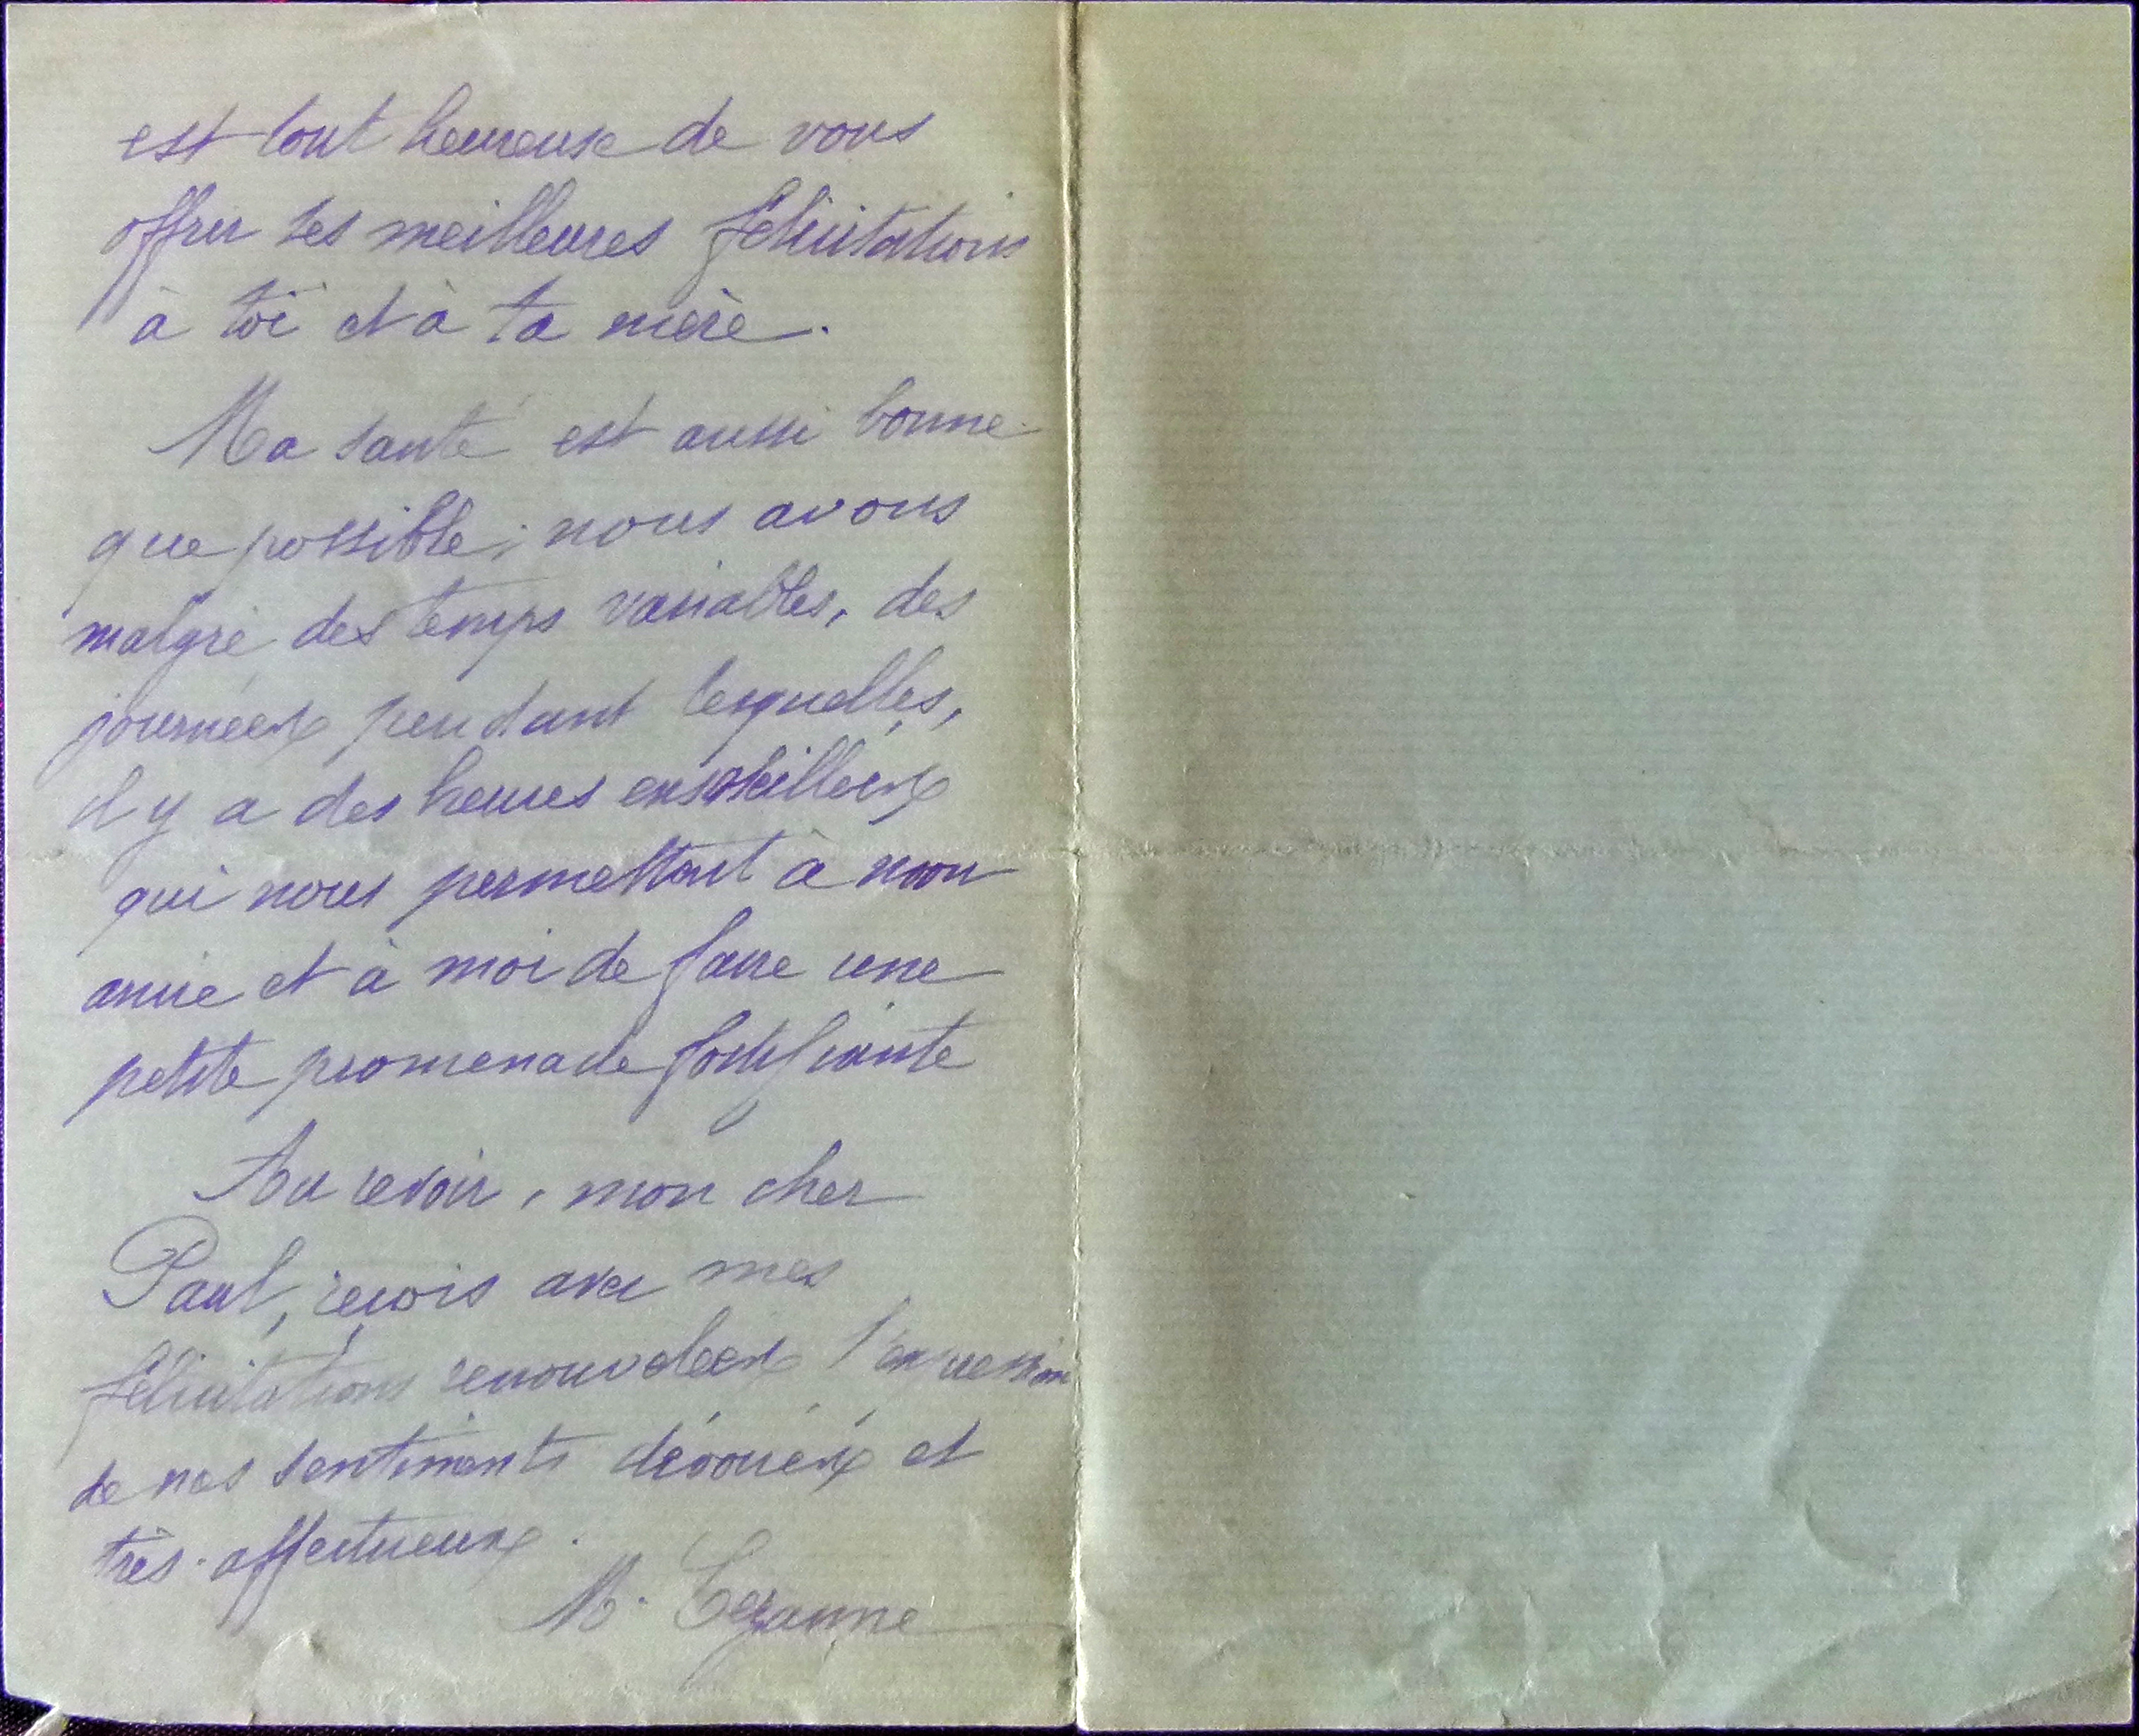 est tout heureuse de vous
offrir ses meilleures félicitations
à toi et à ta mère.
Ma santé est aussi bonne
que possible ; nous avons
malgré des temps variables, des
journées pendant lesquelles,
il y a des heures ensoleillées
qui nous permettent à mon
amie et à moi de faire une
petite promenade fortifiante
Au revoir, mon cher
Paul, reçois avec mes
félicitations renouvelées l'expression
de nos sentiments dévoués et
très affectueux.
M. Cézanne